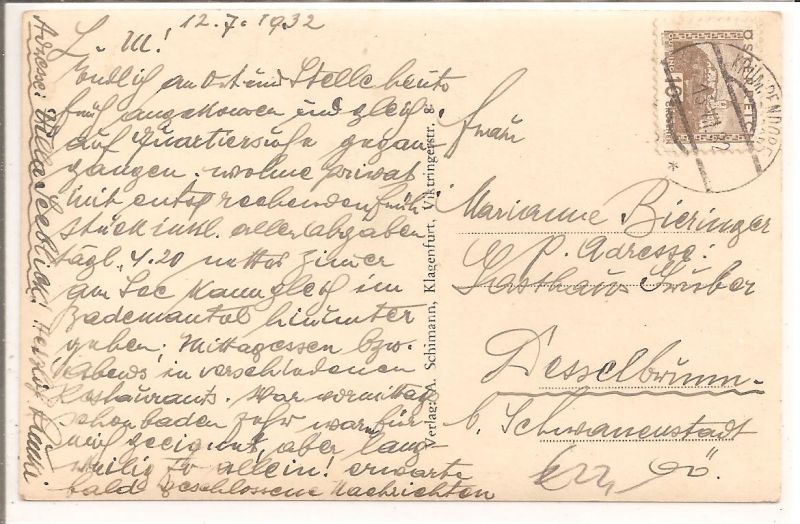 12.7.1932
L. M!
Endlich an Ort und Stelle heute
früh angekommen und gleich
auf Quartiersuche gegan-
gangen. wohne privat
mit entsprechendem Früh-
stück inkl. aller Abgaben
tägl. 4.20 nettes Zimer
am See kann gleich im
Bademantel hinunter
gehen. Mittagessen bzw.
abends in verschiedenen
Restaurants. War vormittag
schon baden sehr warm für
mich geeignet, aber lang-
weilig so allein! erwarte
bald geschlossene Nachrichten
Adresse: Villa Seeblick! Herzlich
Verlag: A. Schimann, Klagenfurt, Viktringerstr. 8
Frau
Marianne Bieringer
p. Adresse:
Gasthaus Gruber
Desselbrunn
b. Schwanenstadt
O.Ö.